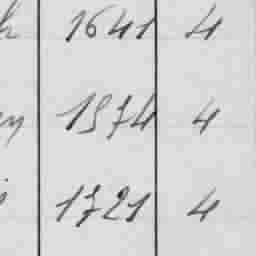 1641 4
1574 4
1721 4